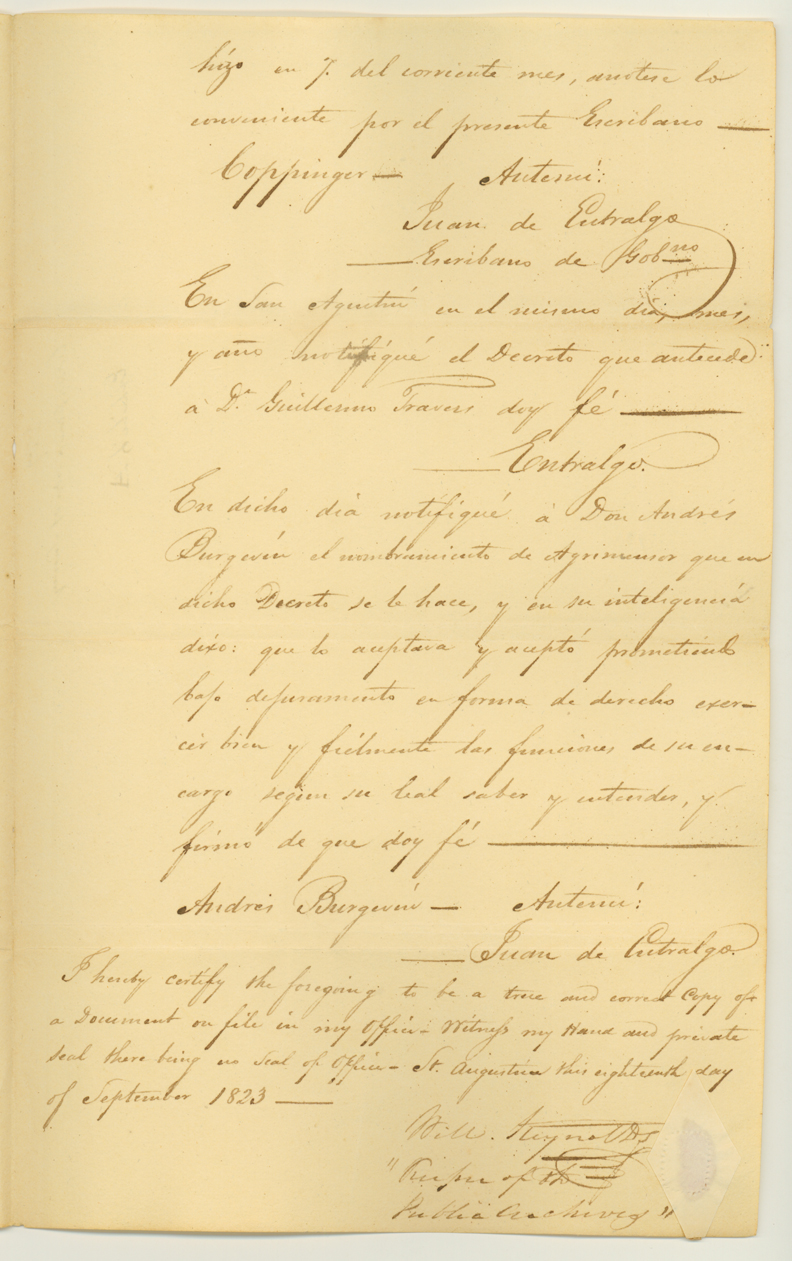 hizo en 7. del corriente mes, anotese lo
conveniente por el presente Escribano —
Coppinger — Antemí:
Juan de Entralgo
— Escribano de Gobno
En San Agustin en el mismo dia, mes,
y año notifiqué el Decreto que antecede
à Dn Guillermo Travers doy fé —
— Entralgo.
En dicho dia notifiqué à Don Andrés
Burgevin el nombramiento de Agrimensor que en
dicho Decreto se le hace, y en su inteligencia
dixo: que lo aceptava y aceptó prometiendo
bajo dejuramento en forma de derecho exer-
cer bien y fiélmente las funciones de su en-
cargo segun su leal saber y entender, y
firmó de que doy fé —
Andrés Burgevin — Antemí:
— Juan de Entralgo.
I hereby certify the foregoing to be a true and correct Copy of
a Document on file in my Office - Witness my Hand and private
seal there being no Seal of Office - St. Augustin this eighteenth day
of September 1823 —
Will. Reynolds
"Keeper of the
Public Archives"